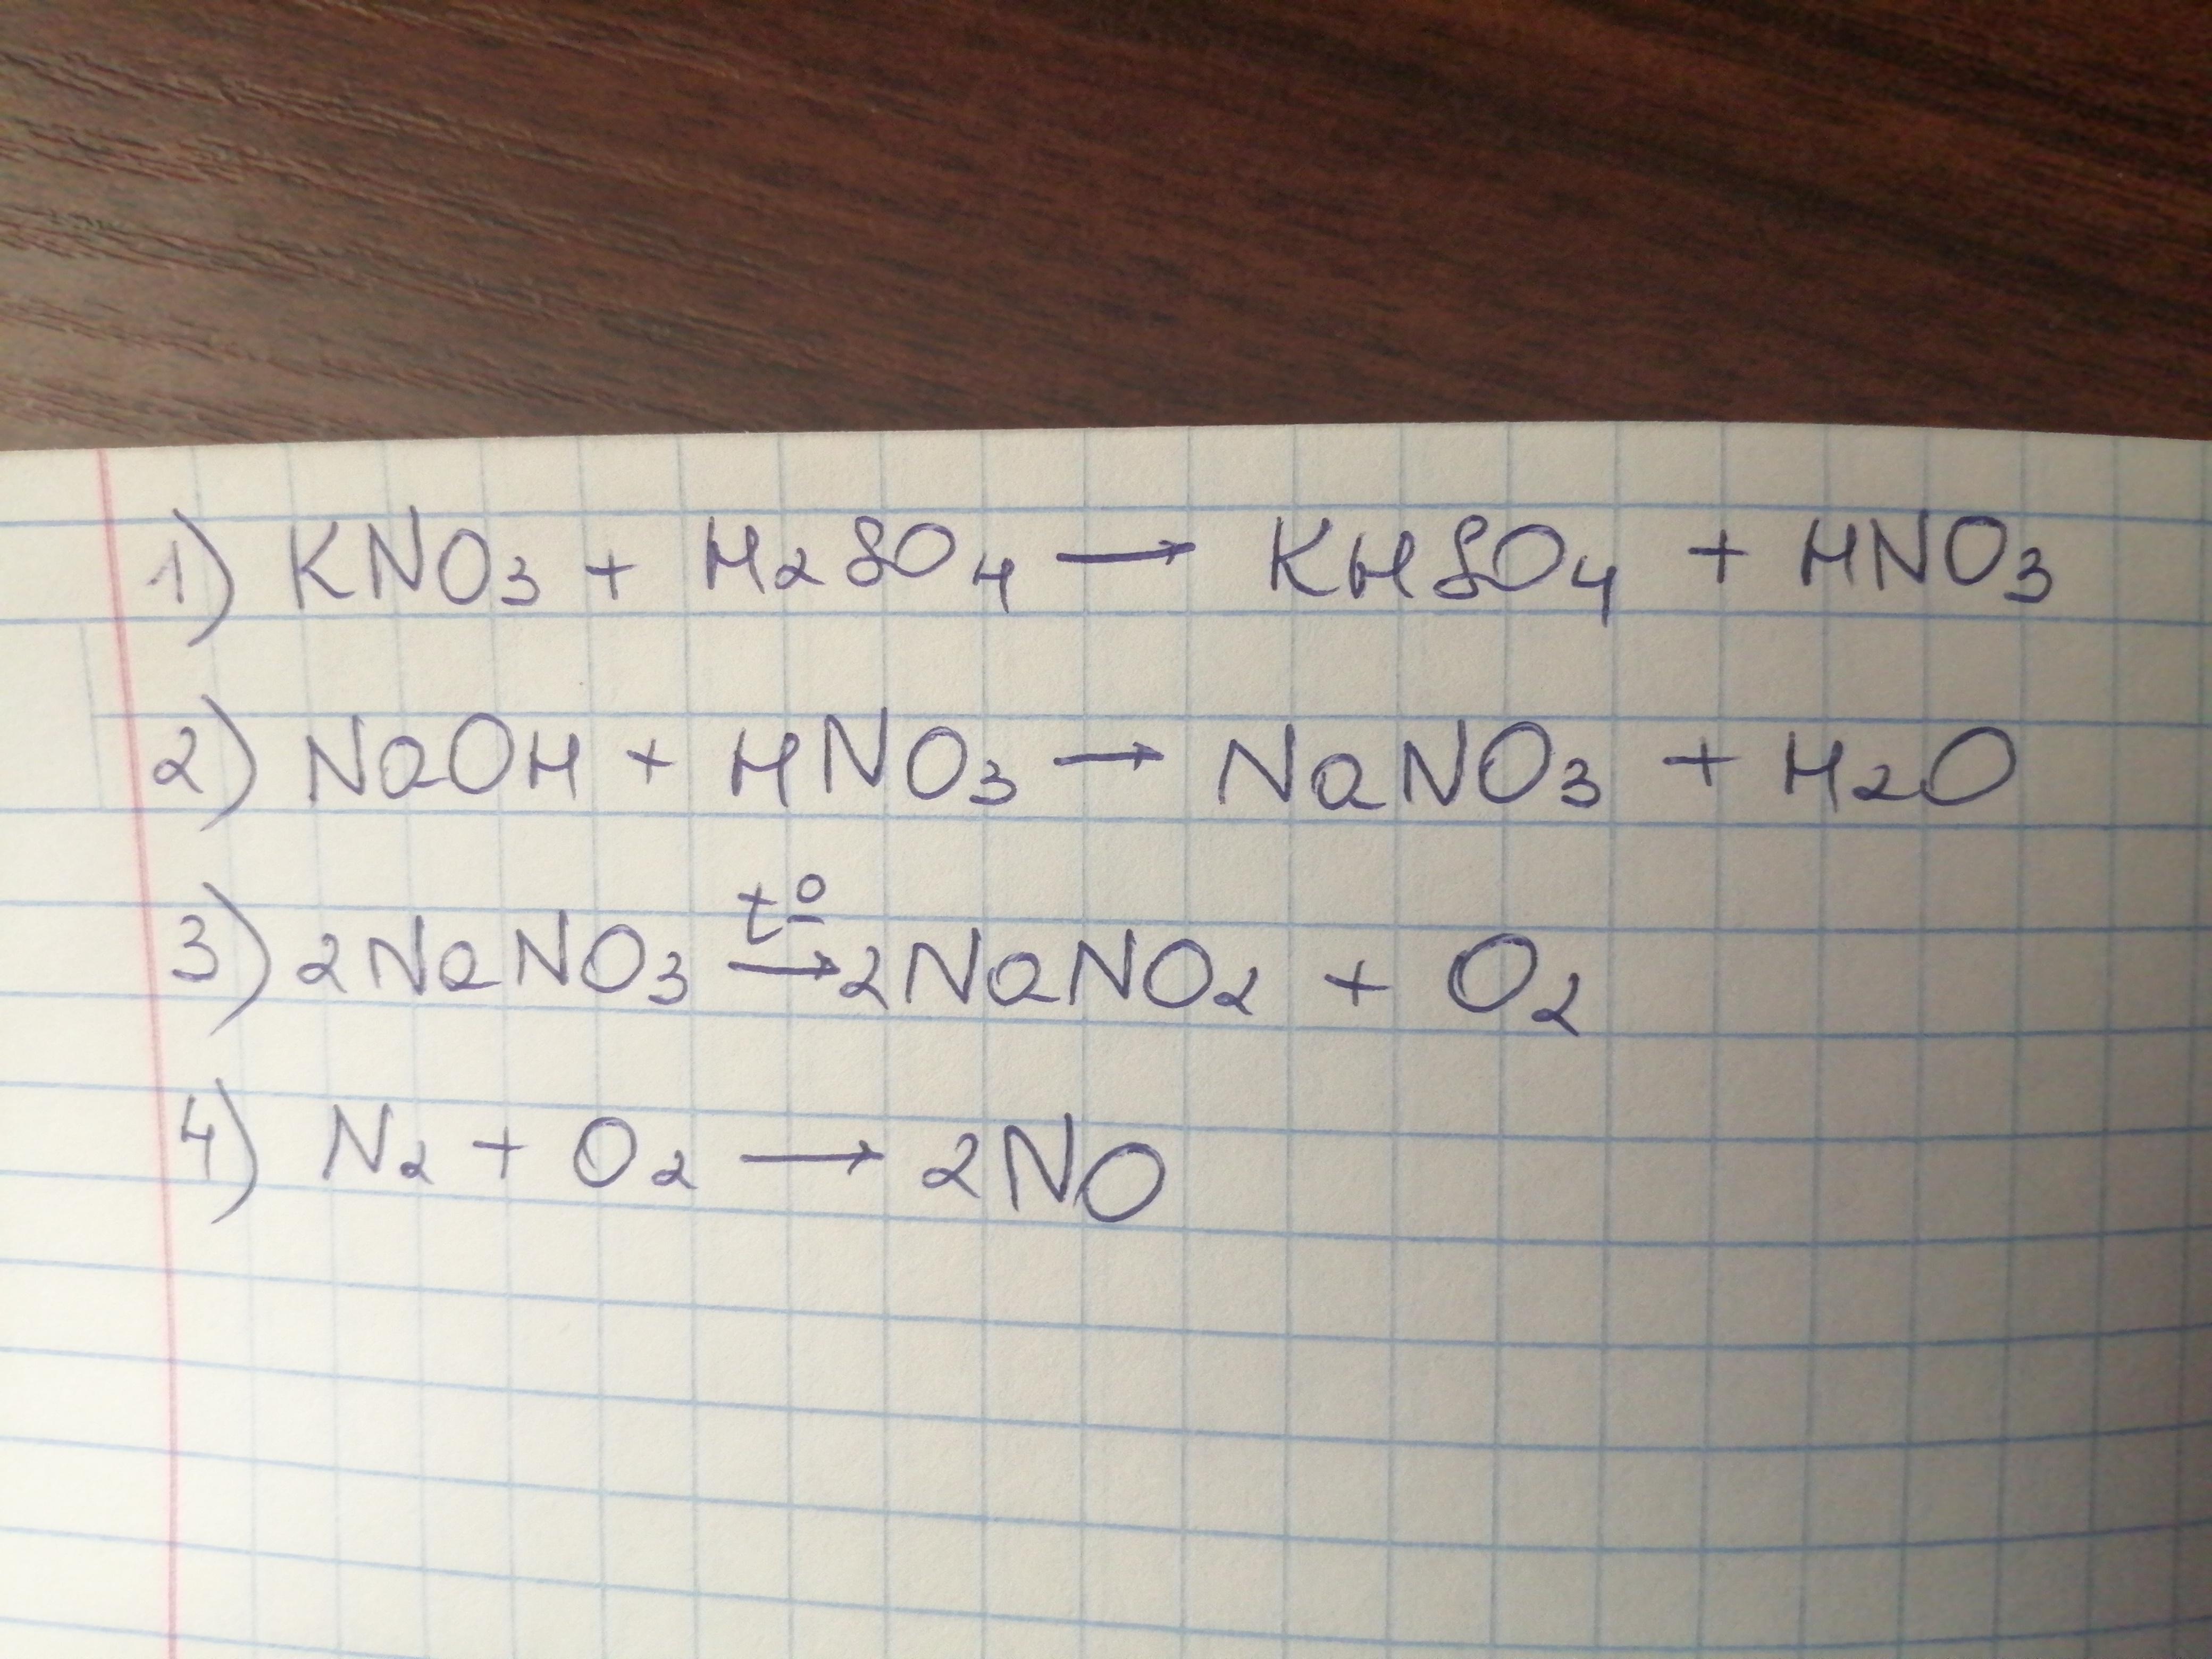 1) KNO₃ + H₂SO₄ → KHSO₄ + HNO₃
2) NaOH + HNO₃ → NaNO₃ + H₂O
3) 2NaNO₃ t° → 2NaNO₂ + O₂
4) N₂ + O₂ → 2NO